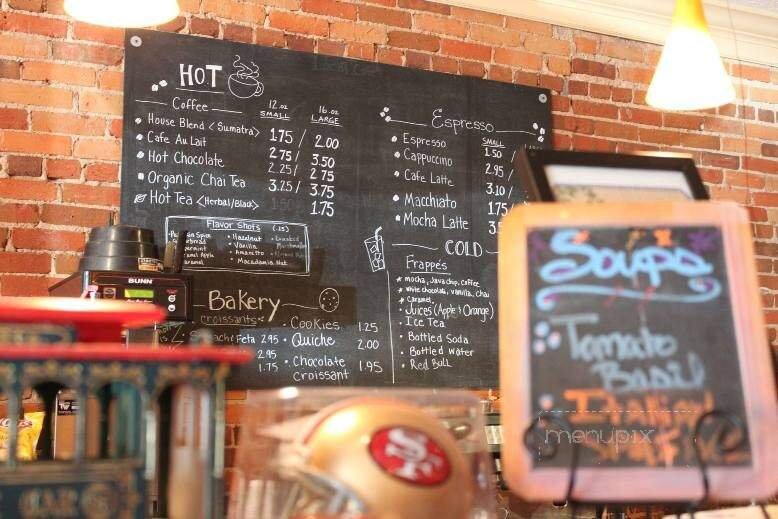 HOT
Coffee
12.oz 16.oz
SMALL LARGE
House Blend <Sumatra> 1.75 / 2.00
Cafe Au Lait 2.75 / 3.50
Hot Chocolate 2.25 / 2.75
Organic Chai Tea 3.25 / 3.75
Hot Tea <Herbal/Black> 1.75
Flavor Shots
Hazelnut
Vanilla
Amaretto
Macadamia Nut
Bakery
croissants
Feta 2.95
2.95
1.75
Cookies 1.25
Quiche 2.00
Chocolate
Croissant 1.95
Espresso
SMALL
Espresso 1.50 /
Cappuccino 2.95 /
Cafe Latte 3.10 /
Macchiato 1.75
Mocha Latte
COLD
Frappe's
mocha, Java chip, coffee
white chocolate, vanilla, chai
caramel
Juices (Apple & Orange)
Ice Tea
Bottled Soda
Bottled water
Red Bull
Soups
Tomato
Basil
BUNN
SF
menupix